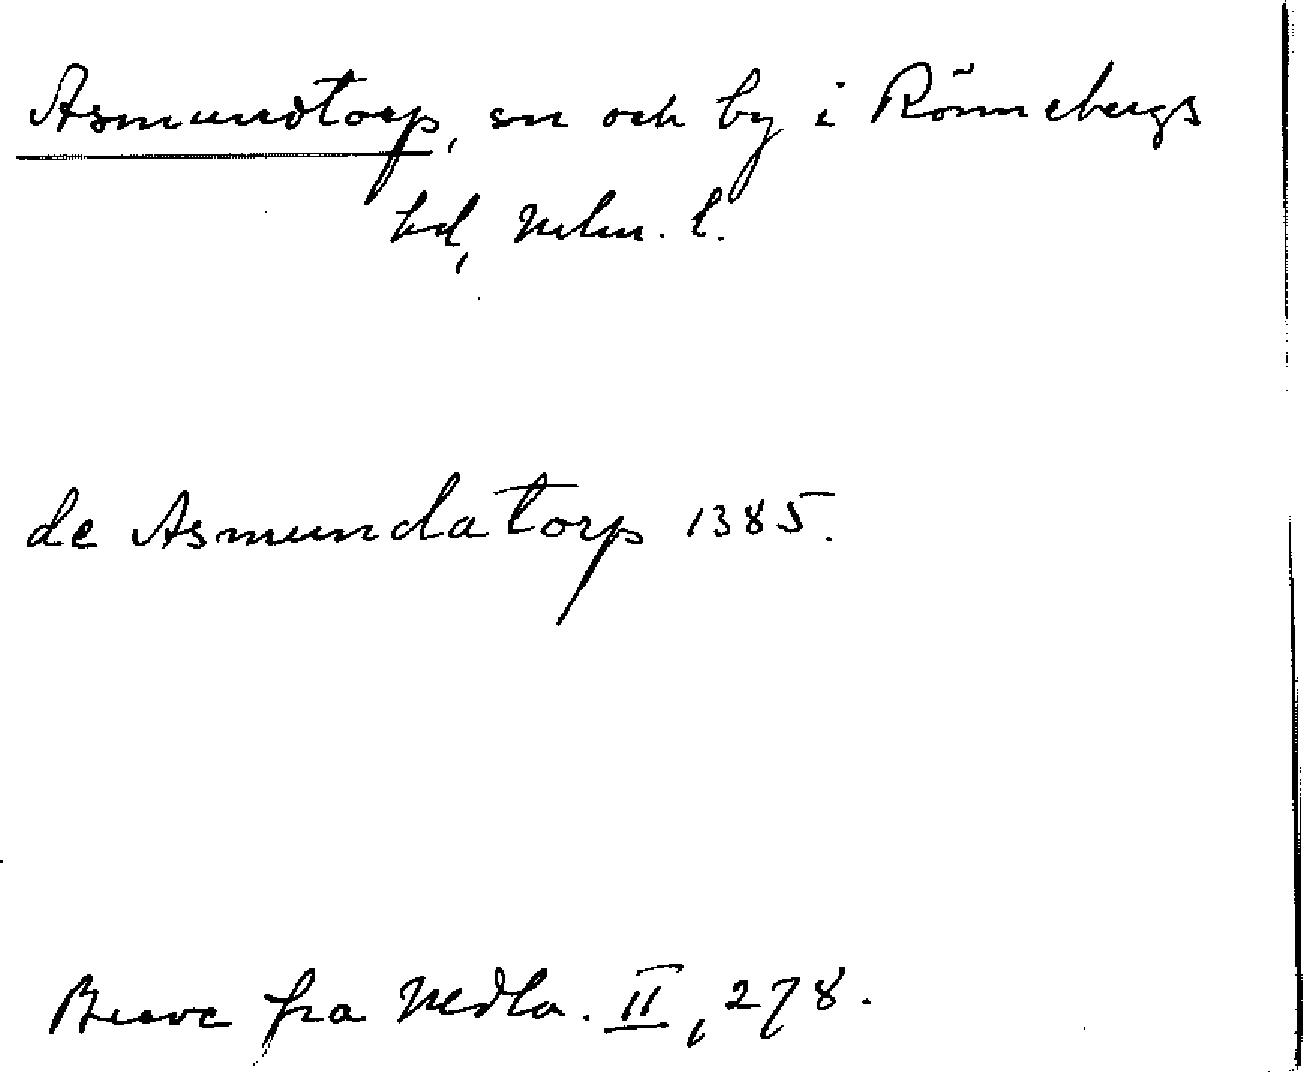 Asmundtorp, sn och by i Rönnebergs
hd, Mlm. l.
de Asmundatorp 1385.
Breve fra Medla. II, 278.